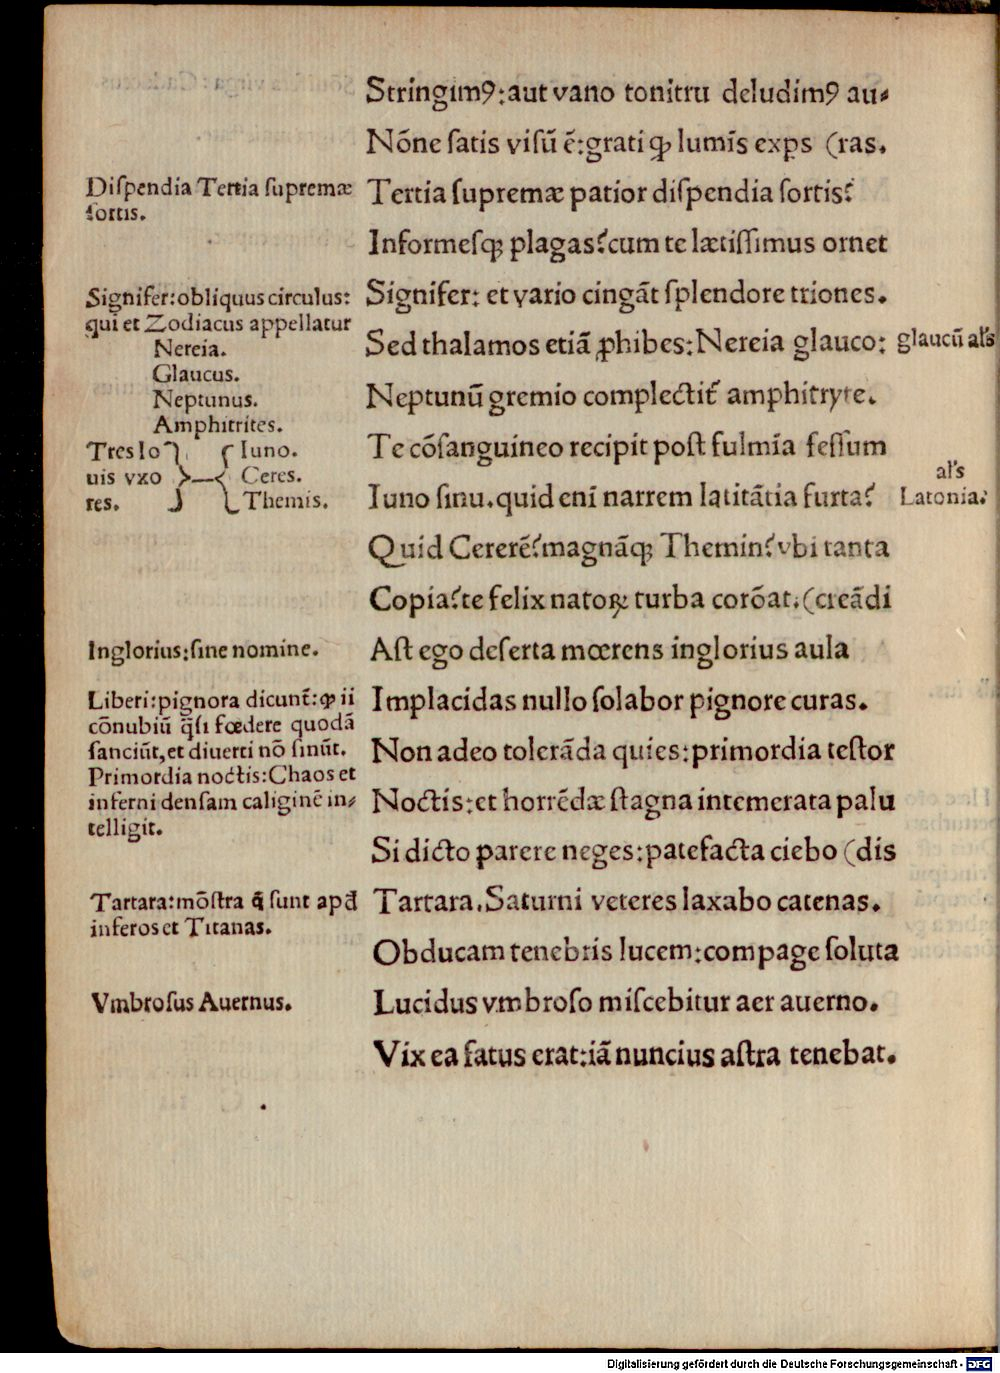 Stringimꝰ: aut vano tonitru deludimꝰ au⸗
Nōne ſatis viſū ē: grati ꝙ lumīs exꝑs (ras.
Diſpendia Tertia ſupremæ
ſortis.
Tertia ſupremæ patior diſpendia ſortis?
Informeſqꝫ plagas? cum te lætiſſimus ornet
Signifer: obliquus circulus:
qui et Zodiacus appellatur
Nereia.
Glaucus.
Neptunus.
Amphitrites.
Signifer: et vario cingāt ſplendore triones.
Sed thalamos etiā ꝓhibes: Nereia glauco: glaucū al's
Neptunū gremio complectit̄ amphitryte.
Tres Io
uis vxo
res.
Iuno.
Ceres.
Themis.
Te cōſanguineo recipit poſt fulmīa feſſum
al's
Iuno ſinu. quid enī narrem latitātia furta? Latonia:
Quid Cererē? magnāqꝫ Themin? vbi tanta
Copia? te felix natoꝝ turba corōat. (creādi
Inglorius: ſine nomine.
Aſt ego deſerta mœrens inglorius aula
Liberi: pignora dicunt̄: ꝙ ii
cōnubiū q̄ſi fœdere quodā
ſanciūt, et diuerti nō ſinūt.
Primordia noctis: Chaos et
inferni denſam caliginē in⸗
telligit.
Implacidas nullo ſolabor pignore curas.
Non adeo tolerāda quies: primordia teſtor
Noctis: et horrēdæ ſtagna intemerata palu
Si dicto parere neges: patefacta ciebo (dis
Tartara: mōſtra q̄ ſunt apđ
inferos et Titanas.
Tartara. Saturni veteres laxabo catenas.
Obducam tenebris lucem: compage ſoluta
Vmbroſus Auernus.
Lucidus vmbroſo miſcebitur aer auerno.
Vix ea fatus erat: iā nuncius aſtra tenebat.
Digitalisierung gefördert durch die Deutsche Forschungsgemeinschaft - DFG